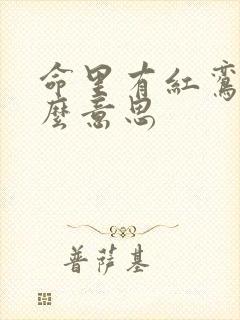 命里有紅鸞
麼意思
普薩基